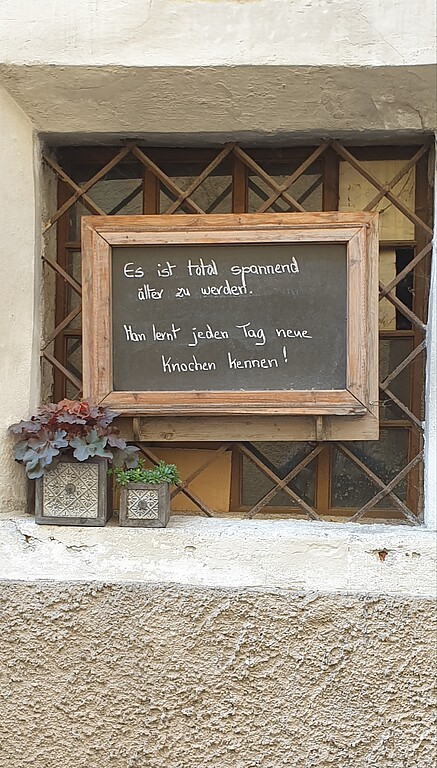 Es ist total spannend
älter zu werden.
Man lernt jeden Tag neue
Knochen kennen!